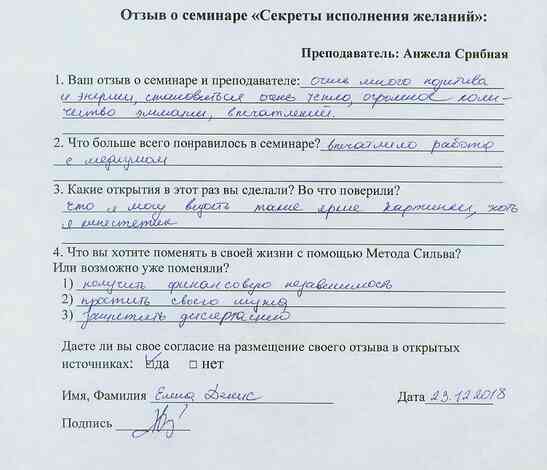 Отзыв о семинаре «Секреты исполнения желаний»:
Преподаватель: Анжела Срибная
1. Ваш отзыв о семинаре и преподавателе: очень много позитива
и энергии, становиться очень тепло, огромное коли-
чество эмоций, впечатлений.
2. Что больше всего понравилось в семинаре? впечатлило работа
с медиумом
3. Какие открытия в этот раз вы сделали? Во что поверили?
что я могу видеть такие яркие картинки, хоть
я кинестетик
4. Что вы хотите поменять в своей жизни с помощью Метода Сильва?
Или возможно уже поменяли?
1) получить финансовую независимость
2) простить своего мужа
3) защитить диссертацию
Даете ли вы свое согласие на размещение своего отзыва в открытых
источниках: ☑да □ нет
Имя, Фамилия Елена Денис Дата 23.12.2018
Подпись